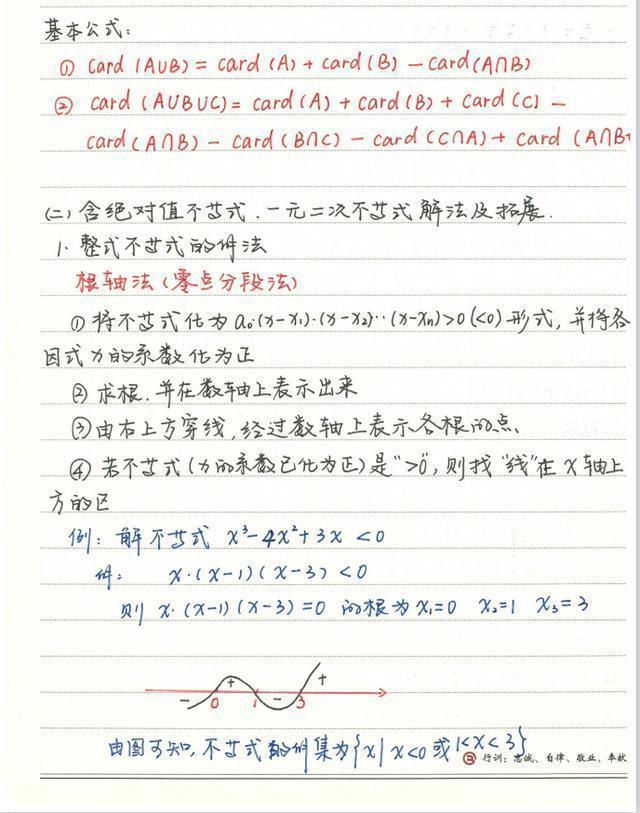 基本公式:
① card (A∪B) = card (A) + card (B) - card(A∩B)
② card (A∪B∪C) = card (A) + card (B) + card (C) -
card(A∩B) - card (B∩C) - card (C∩A) + card (A∩B
(二) 含绝对值不等式、一元二次不等式解法及拓展.
1. 整式不等式的解法
根轴法 (零点分段法)
① 将不等式化为 a₀·(x-x₁)·(x-x₂)··(x-xₙ)>0 (<0) 形式, 并将各
因式 x 的系数化为正
② 求根, 并在数轴上表示出来
③ 由右上方穿线, 经过数轴上表示各根的点、
④ 若不等式 (x 的系数已化为正) 是 ">0", 则找 "线" 在 x 轴上
方的区
例: 解不等式 x³-4x²+3x <0
解: x·(x-1)(x-3) <0
则 x·(x-1)(x-3)=0 的根为 x₁=0 x₂=1 x₃=3
- + - +
0 1 3
由图可知, 不等式的解集为 {x| x<0 或 1<x<3}
行训: 忠诚、自律、敬业、奉献